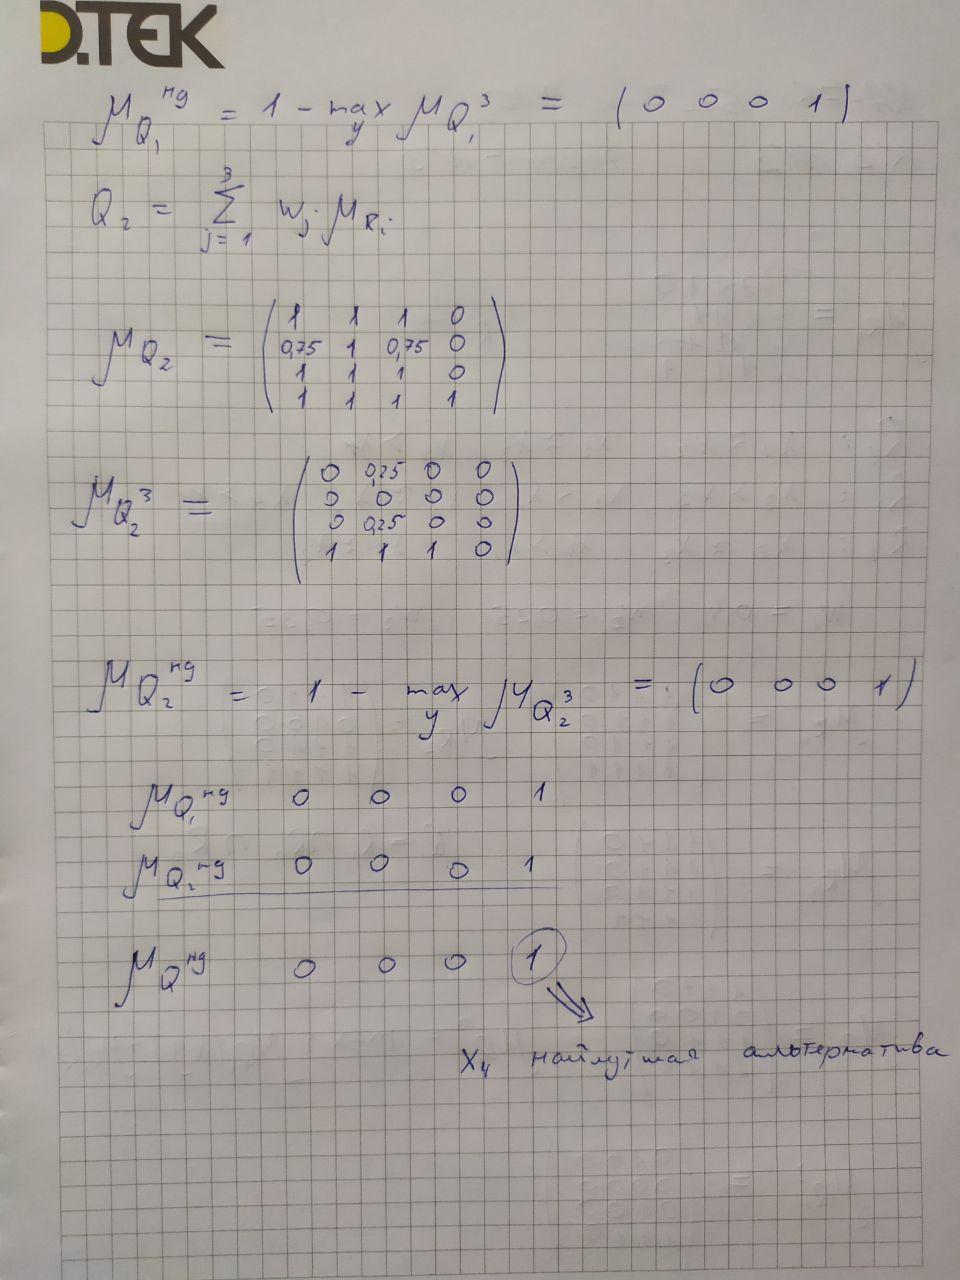 D.TEK
μ_{Q_1}^{нд} = 1 - max_y μ_{Q_1}^3 = (0 0 0 1)
Q_2 = Σ_{j=1}^{3} w_j μ_{R_i}
μ_{Q_2} =
1 1 1 0
0,75 1 0,75 0
1 1 1 0
1 1 1 1
μ_{Q_2}^3 =
0 0,25 0 0
0 0 0 0
0 0,25 0 0
1 1 1 0
μ_{Q_2}^{нд} = 1 - max_y μ_{Q_2}^3 = (0 0 0 1)
μ_{Q_1}^{нд} 0 0 0 1
μ_{Q_2}^{нд} 0 0 0 1
μ_Q^{нд} 0 0 0 1
x_4 найлучшая альтернатива